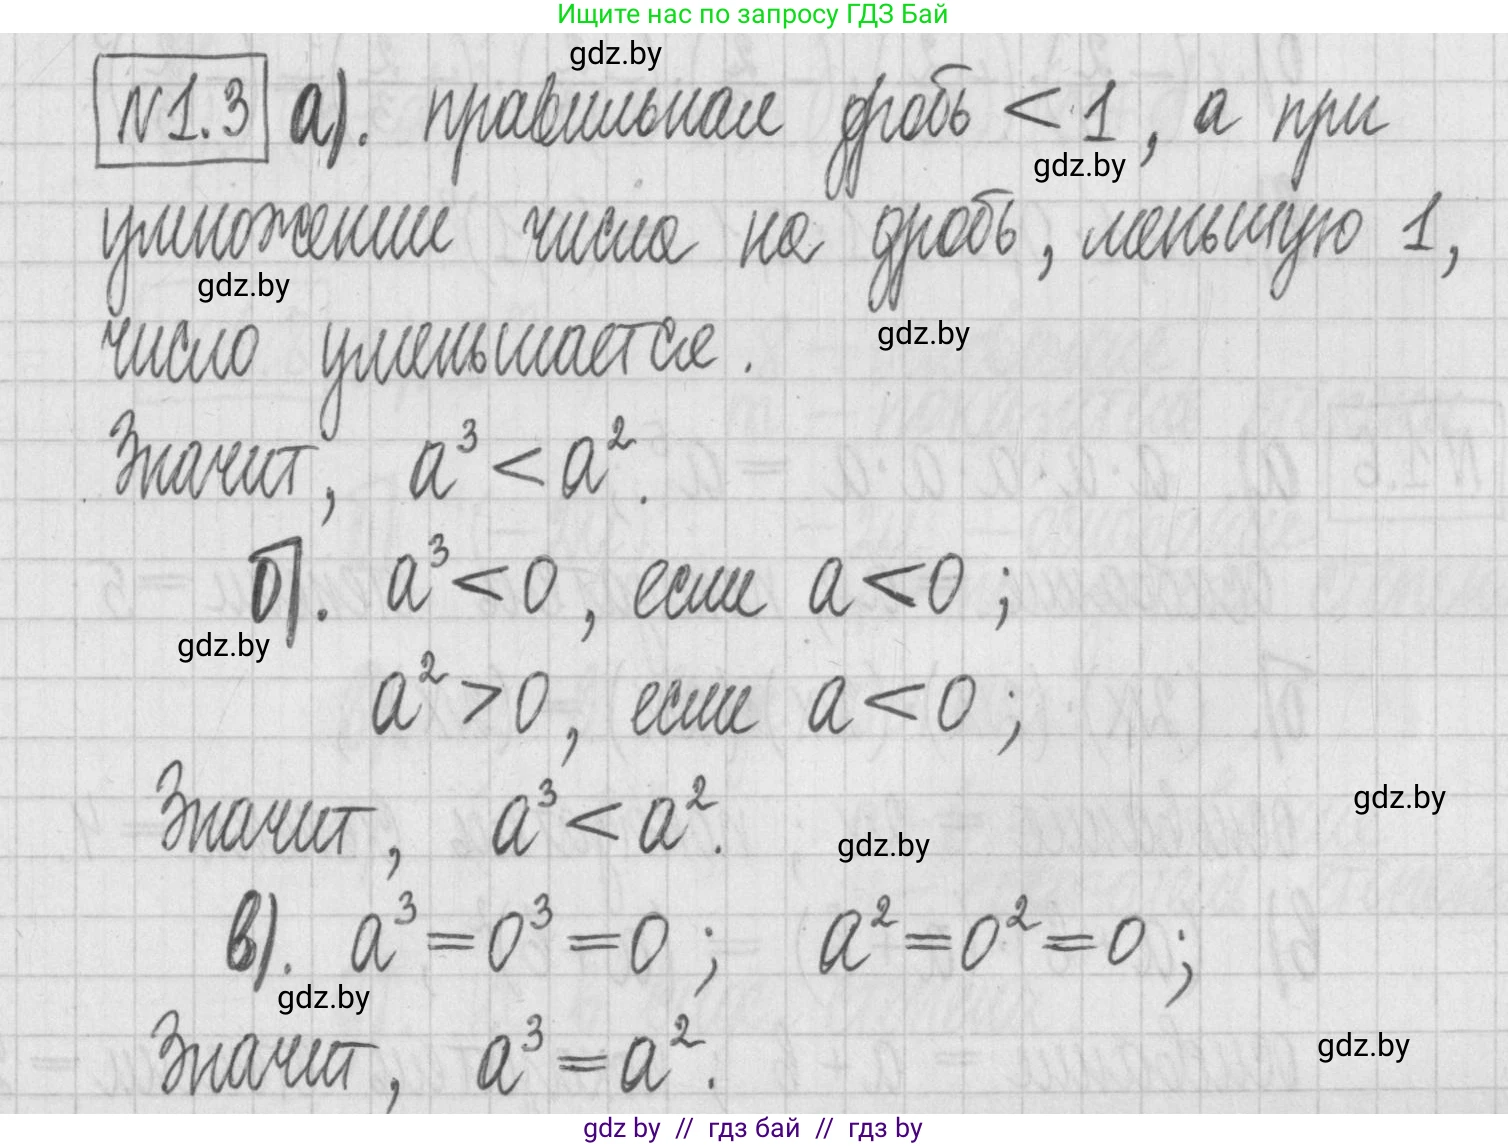 Ищите нас по запросу ГДЗ Бай
gdz.by
№1.3 а). правильная дробь < 1, а при
gdz.by
умножении числа на дробь, меньшую 1,
gdz.by
число уменьшается.
gdz.by
Значит, a³ < a².
б). a³ < 0, если a < 0;
gdz.by
a² > 0, если a < 0;
gdz.by
Значит, a³ < a².
gdz.by
в). a³ = 0³ = 0; a² = 0² = 0;
gdz.by
Значит, a³ = a².
gdz.by
gdz by // гдз бай // гдз by